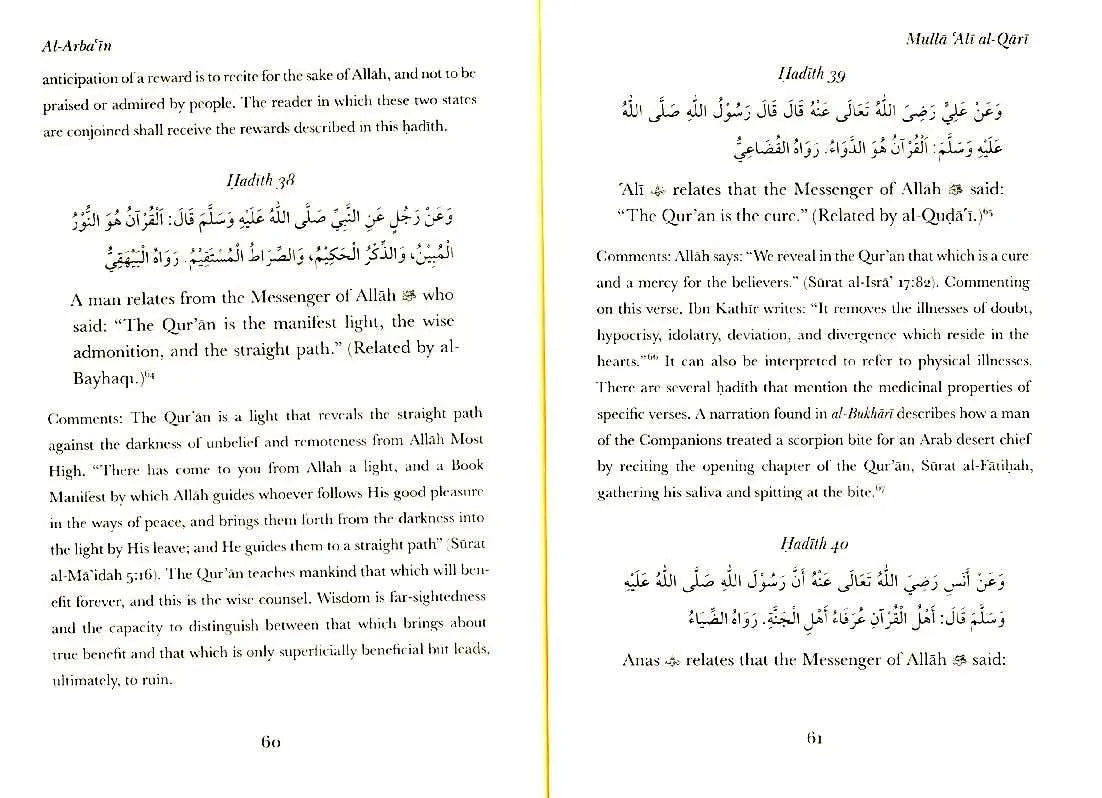 Al-Arbaʿīn
anticipation of a reward is to recite for the sake of Allāh, and not to be
praised or admired by people. The reader in which these two states
are conjoined shall receive the rewards described in this ḥadīth.
Ḥadīth 38
وَعَنْ رَجُلٍ عَنِ النَّبِيِّ صَلَّى اللهُ عَلَيْهِ وَسَلَّمَ قَالَ: اَلْقُرْآنُ هُوَ النُّوْرُ
الْمُبِيْنُ، وَالذِّكْرُ الْحَكِيْمُ، وَالصِّرَاطُ الْمُسْتَقِيْمُ. رَوَاهُ الْبَيْهَقِيُّ
A man relates from the Messenger of Allāh ﷺ who
said: “The Qur’ān is the manifest light, the wise
admonition, and the straight path.” (Related by al-
Bayhaqī.)⁶⁴
Comments: The Qur’ān is a light that reveals the straight path
against the darkness of unbelief and remoteness from Allāh Most
High. “There has come to you from Allah a light, and a Book
Manifest by which Allāh guides whoever follows His good pleasure
in the ways of peace, and brings them forth from the darkness into
the light by His leave; and He guides them to a straight path” (Sūrat
al-Mā’idah 5:16). The Qur’ān teaches mankind that which will ben-
efit forever, and this is the wise counsel. Wisdom is far-sightedness
and the capacity to distinguish between that which brings about
true benefit and that which is only superficially beneficial but leads,
ultimately, to ruin.
60
Mullā ʿAlī al-Qārī
Ḥadīth 39
وَعَنْ عَلِيٍّ رَضِيَ اللهُ تَعَالَى عَنْهُ قَالَ قَالَ رَسُوْلُ اللهِ صَلَّى اللهُ
عَلَيْهِ وَسَلَّمَ: اَلْقُرْآنُ هُوَ الدَّوَاءُ. رَوَاهُ الْقُضَاعِيُّ
ʿAlī ؓ relates that the Messenger of Allāh ﷺ said:
“The Qur’ān is the cure.” (Related by al-Quḍāʿī.)⁶⁵
Comments: Allāh says: “We reveal in the Qur’an that which is a cure
and a mercy for the believers.” (Sūrat al-Isrā’ 17:82). Commenting
on this verse, Ibn Kathīr writes: “It removes the illnesses of doubt,
hypocrisy, idolatry, deviation, and divergence which reside in the
hearts.”⁶⁶ It can also be interpreted to refer to physical illnesses.
There are several ḥadīth that mention the medicinal properties of
specific verses. A narration found in al-Bukhārī describes how a man
of the Companions treated a scorpion bite for an Arab desert chief
by reciting the opening chapter of the Qur’ān, Sūrat al-Fātiḥah,
gathering his saliva and spitting at the bite.⁶⁷
Ḥadīth 40
وَعَنْ أَنَسٍ رَضِيَ اللهُ تَعَالَى عَنْهُ أَنَّ رَسُوْلَ اللهِ صَلَّى اللهُ عَلَيْهِ
وَسَلَّمَ قَالَ: أَهْلُ الْقُرْآنِ عُرَفَاءُ أَهْلِ الْجَنَّةِ. رَوَاهُ الضِّيَاءُ
Anas ؓ relates that the Messenger of Allāh ﷺ said:
61